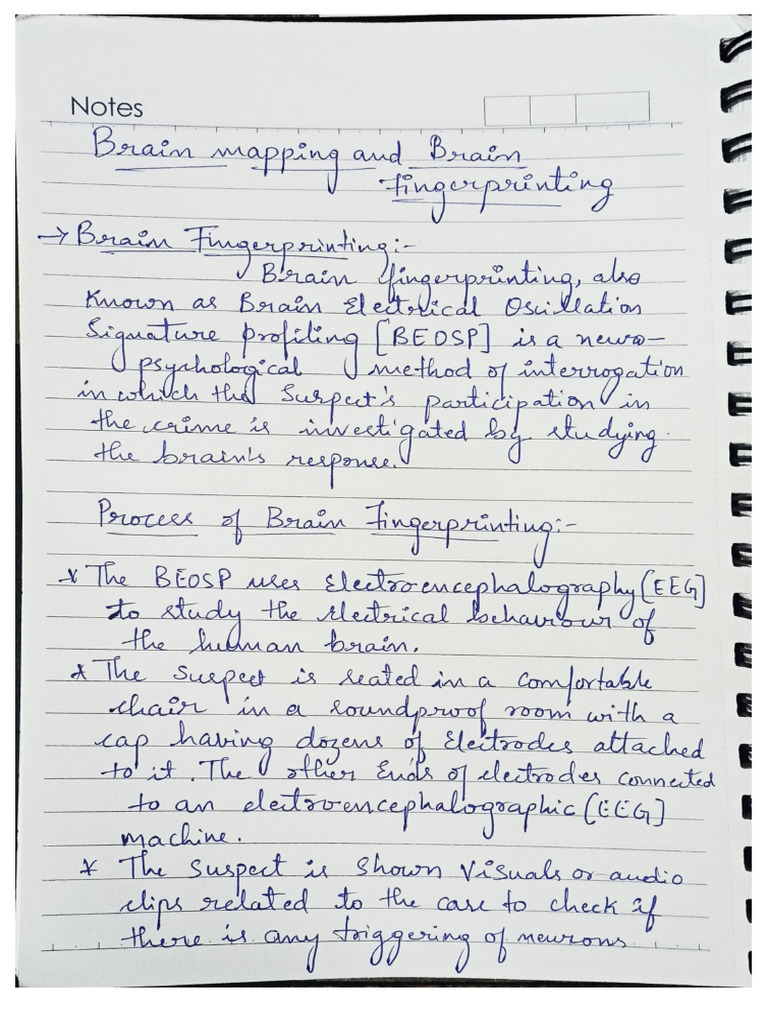 Notes
Brain mapping and Brain
Fingerprinting
→ Brain Fingerprinting:-
Brain fingerprinting, also
Known as Brain Electrical Oscillation
Signature profiling [BEOSP] is a neuro-
psychological method of interrogation
in which the Suspect's participation in
the crime is investigated by studying
the brain's response.
Process of Brain Fingerprinting:-
* The BEOSP uses Electroencephalography [EEG]
to study the electrical behaviour of
the human brain.
* The suspect is seated in a comfortable
chair in a soundproof room with a
cap having dozens of Electrodes attached
to it. The other Ends of electrodes connected
to an electroencephalographic [EEG]
machine.
* The suspect is shown visuals or audio
clips related to the case to check if
there is any triggering of neurons